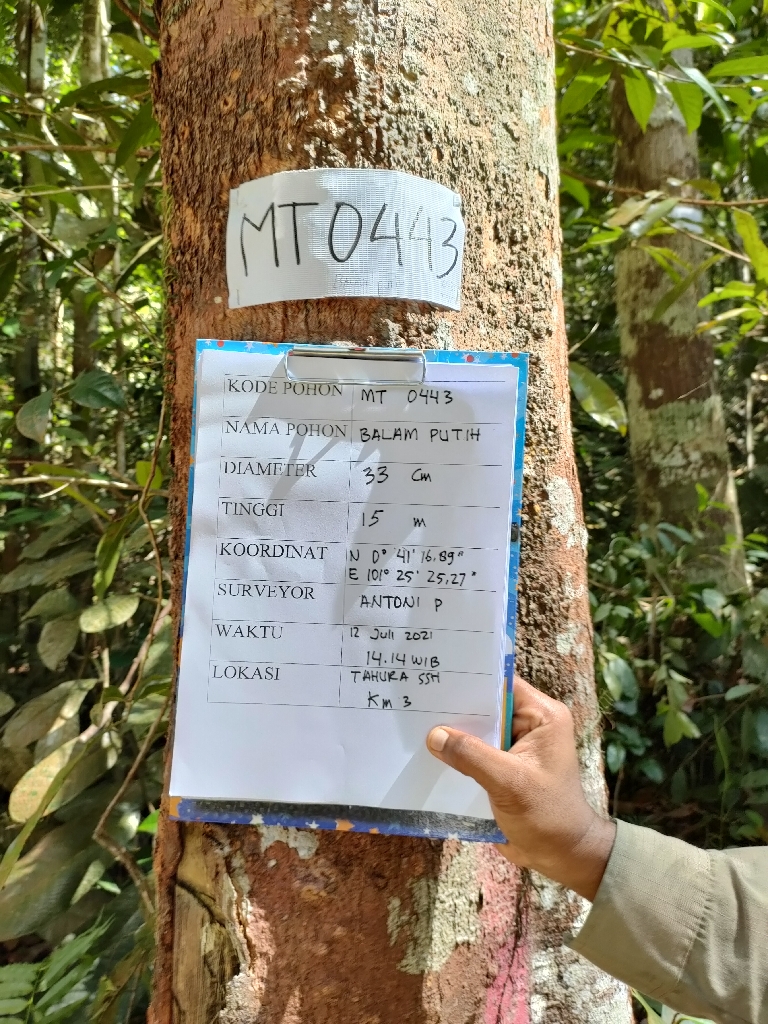 MT0443
KODE POHON MT 0443
NAMA POHON BALAM PUTIH
DIAMETER 33 Cm
TINGGI 15 m
KOORDINAT N 0° 41' 16,89"
E 101° 25' 25,27"
SURVEYOR ANTONI P
WAKTU 12 Juli 2021
14.14 WIB
LOKASI TAHURA SSH
Km 3